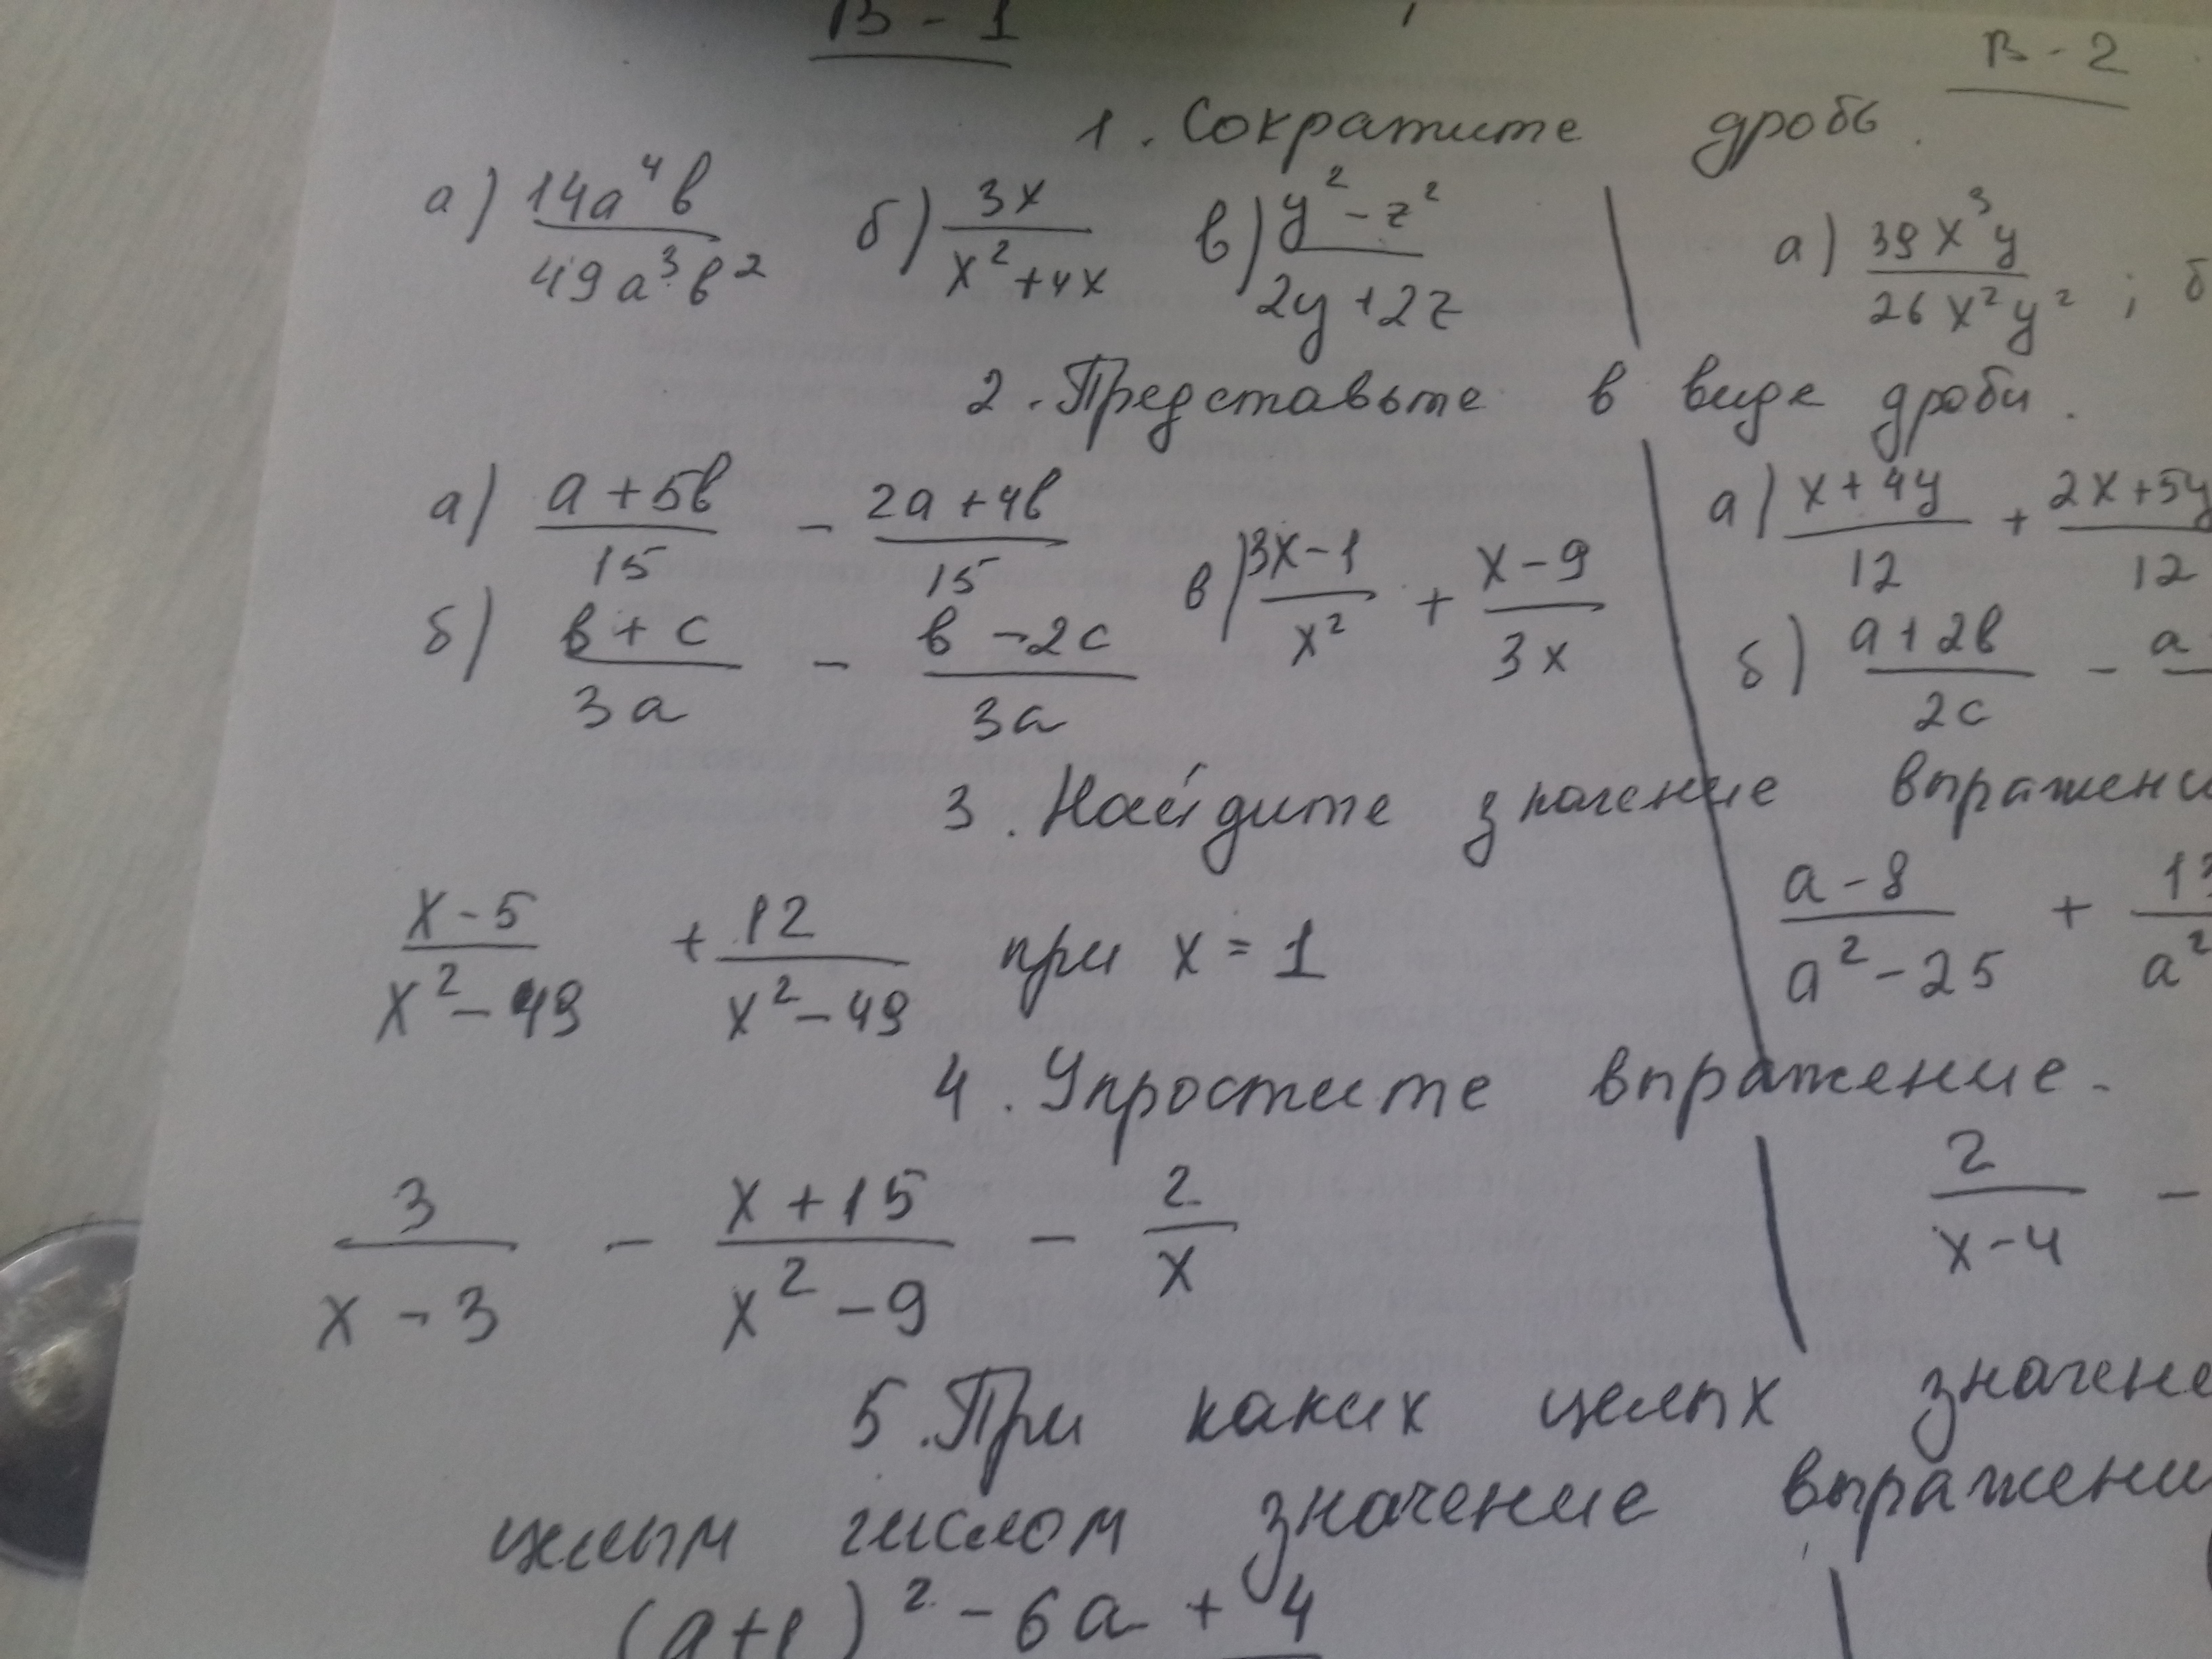 В - 1 В - 2
1. Сократите дробь.
а) 14a⁴b / 49a³b² б) 3x / x²+4x в) y²-z² / 2y+2z а) 39x³y / 26x²y² ; б
2. Представьте в виде дроби.
а) a+5b / 15 - 2a+4b / 15 в) 3x-1 / x² + x-9 / 3x а) x+4y / 12 + 2x+5y / 12
б) b+c / 3a - b-2c / 3a б) a+2b / 2c - a
3. Найдите значение выражени
x-5 / x²-49 + 12 / x²-49 при x = 1 a-8 / a²-25 + 13 / a²
4. Упростите выражение.
3 / x-3 - x+15 / x²-9 - 2 / x 2 / x-4 -
5. При каких целых значени
целым числом значение выражени
(a+1)² - 6a + 4